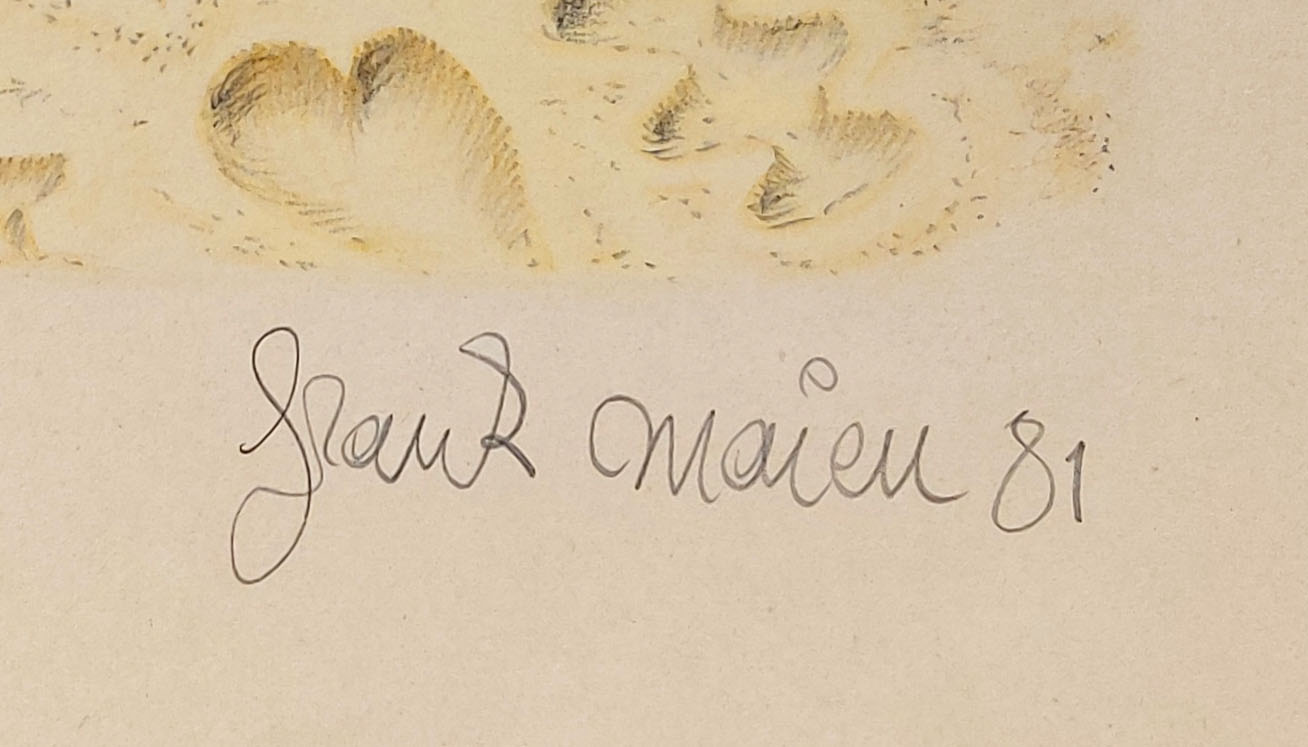 Frank Maieu 81